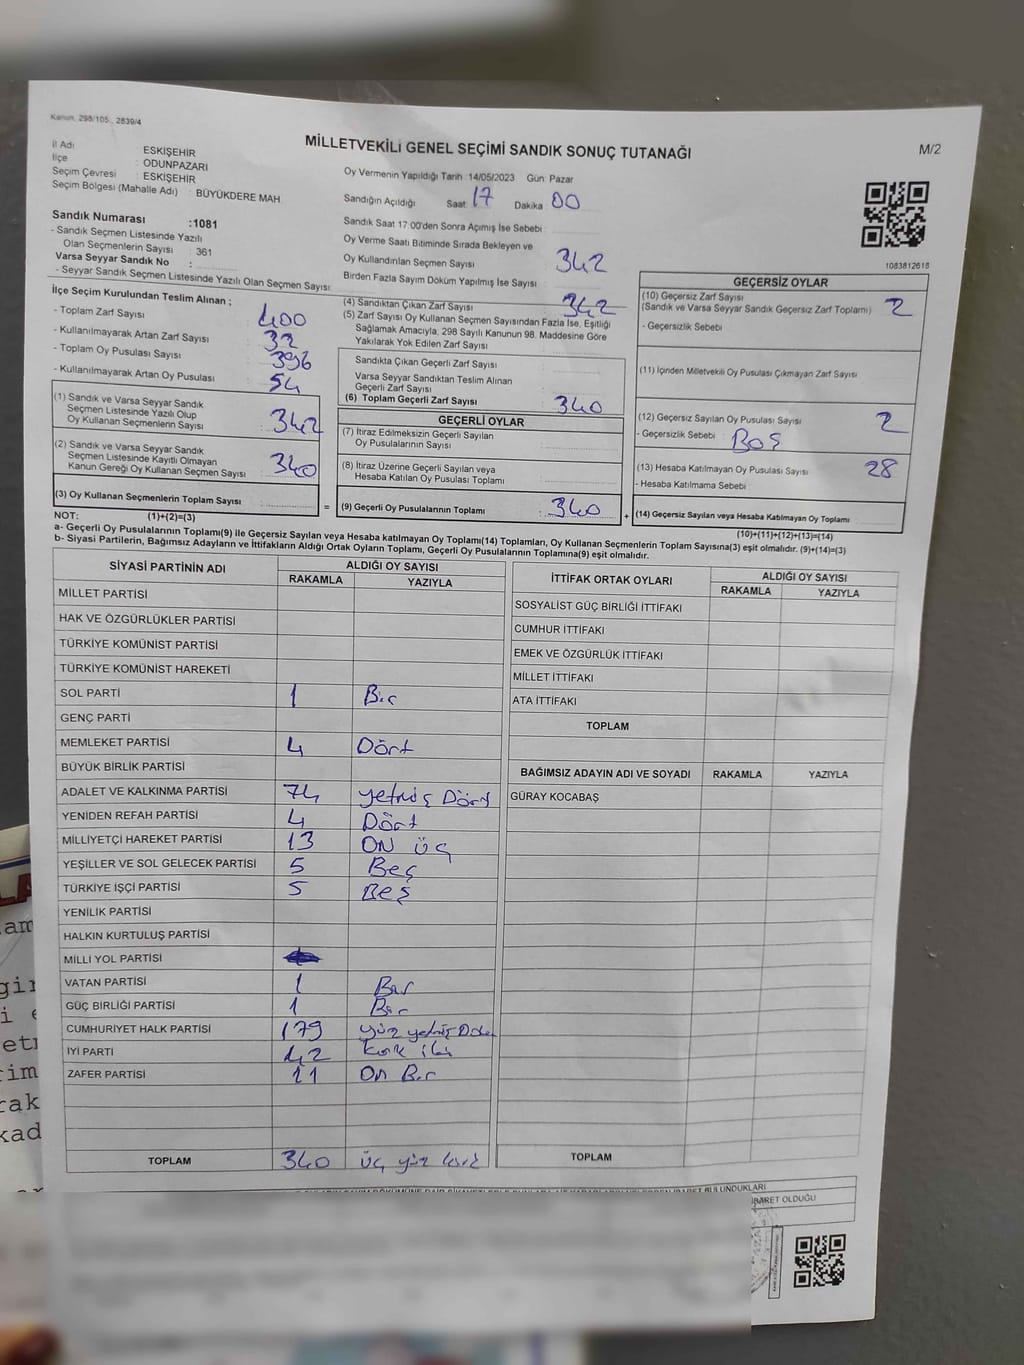 Kanun, 298/105 , 2839/4
MİLLETVEKİLİ GENEL SEÇİMİ SANDIK SONUÇ TUTANAĞI
M/2
İl Adı ESKİŞEHİR
İlçe : ODUNPAZARI
Seçim Çevresi : ESKİŞEHİR
Seçim Bölgesi (Mahalle Adı) : BÜYÜKDERE MAH
Sandık Numarası :1081
- Sandık Seçmen Listesinde Yazılı
Olan Seçmenlerin Sayısı : 361
Varsa Seyyar Sandık No :
- Seyyar Sandık Seçmen Listesinde Yazılı Olan Seçmen Sayısı:
Oy Vermenin Yapıldığı Tarih :14/05/2023 Gün: Pazar
Sandığın Açıldığı Saat: 17 Dakika: 00
Sandık Saat 17:00'den Sonra Açımış İse Sebebi :
Oy Verme Saati Bitiminde Sırada Bekleyen ve
Oy Kullandırılan Seçmen Sayısı 342
Birden Fazla Sayım Döküm Yapılmış İse Sayısı :
1083812618
İlçe Seçim Kurulundan Teslim Alınan ;
- Toplam Zarf Sayısı 400
- Kullanılmayarak Artan Zarf Sayısı : 32
- Toplam Oy Pusulası Sayısı : 396
- Kullanılmayarak Artan Oy Pusulası : 54
(1) Sandık ve Varsa Seyyar Sandık
Seçmen Listesinde Yazılı Olup
Oy Kullanan Seçmenlerin Sayısı : 342
(2) Sandık ve Varsa Seyyar Sandık
Seçmen Listesinde Kayıtlı Olmayan
Kanun Gereği Oy Kullanan Seçmen Sayısı : 340
(3) Oy Kullanan Seçmenlerin Toplam Sayısı
(1)+(2)=(3)
(4) Sandıktan Çıkan Zarf Sayısı : 342
(5) Zarf Sayısı Oy Kullanan Seçmen Sayısından Fazla İse, Eşitliği
Sağlamak Amacıyla, 298 Sayılı Kanunun 98. Maddesine Göre
Yakılarak Yok Edilen Zarf Sayısı
Sandıkta Çıkan Geçerli Zarf Sayısı :
Varsa Seyyar Sandıktan Teslim Alınan
Geçerli Zarf Sayısı :
(6) Toplam Geçerli Zarf Sayısı : 340
GEÇERLİ OYLAR
(7) İtiraz Edilmeksizin Geçerli Sayılan
Oy Pusulalarının Sayısı :
(8) İtiraz Üzerine Geçerli Sayılan veya
Hesaba Katılan Oy Pusulası Toplamı :
= (9) Geçerli Oy Pusulalarının Toplamı : 340
GEÇERSİZ OYLAR
(10) Geçersiz Zarf Sayısı 2
(Sandık ve Varsa Seyyar Sandık Geçersiz Zarf Toplamı)
- Geçersizlik Sebebi :
(11) İçinden Milletvekili Oy Pusulası Çıkmayan Zarf Sayısı
(12) Geçersiz Sayılan Oy Pusulası Sayısı : 2
- Geçersizlik Sebebi : BOŞ
(13) Hesaba Katılmayan Oy Pusulası Sayısı : 28
- Hesaba Katılmama Sebebi :
+ (14) Geçersiz Sayılan veya Hesaba Katılmayan Oy Toplamı
(10)+(11)+(12)+(13)=(14)
NOT:
a- Geçerli Oy Pusulalarının Toplamı(9) ile Geçersiz Sayılan veya Hesaba katılmayan Oy Toplamı(14) Toplamları, Oy Kullanan Seçmenlerin Toplam Sayısına(3) eşit olmalıdır. (9)+(14)=(3)
b- Siyasi Partilerin, Bağımsız Adayların ve İttifakların Aldığı Ortak Oyların Toplamı, Geçerli Oy Pusulalarının Toplamına(9) eşit olmalıdır.
SİYASİ PARTİNİN ADI ALDIĞI OY SAYISI
RAKAMLA YAZIYLA
MİLLET PARTİSİ
HAK VE ÖZGÜRLÜKLER PARTİSİ
TÜRKİYE KOMÜNİST PARTİSİ
TÜRKİYE KOMÜNİST HAREKETİ
SOL PARTİ 1 Bir
GENÇ PARTİ
MEMLEKET PARTİSİ 4 Dört
BÜYÜK BİRLİK PARTİSİ
ADALET VE KALKINMA PARTİSİ 74 yetmiş Dört
YENİDEN REFAH PARTİSİ 4 Dört
MİLLİYETÇİ HAREKET PARTİSİ 13 ON ÜÇ
YEŞİLLER VE SOL GELECEK PARTİSİ 5 Beş
TÜRKİYE İŞÇİ PARTİSİ 5 Beş
YENİLİK PARTİSİ
HALKIN KURTULUŞ PARTİSİ
MİLLİ YOL PARTİSİ
VATAN PARTİSİ 1 Bir
GÜÇ BİRLİĞİ PARTİSİ 1 Bir
CUMHURİYET HALK PARTİSİ 179 yüz yetmiş
İYİ PARTİ 42 kırk iki
ZAFER PARTİSİ 11 On Bir
TOPLAM 340 üç yüz
İTTİFAK ORTAK OYLARI ALDIĞI OY SAYISI
RAKAMLA YAZIYLA
SOSYALİST GÜÇ BİRLİĞİ İTTİFAKI
CUMHUR İTTİFAKI
EMEK VE ÖZGÜRLÜK İTTİFAKI
MİLLET İTTİFAKI
ATA İTTİFAKI
TOPLAM
BAĞIMSIZ ADAYIN ADI VE SOYADI RAKAMLA YAZIYLA
GÜRAY KOCABAŞ
TOPLAM